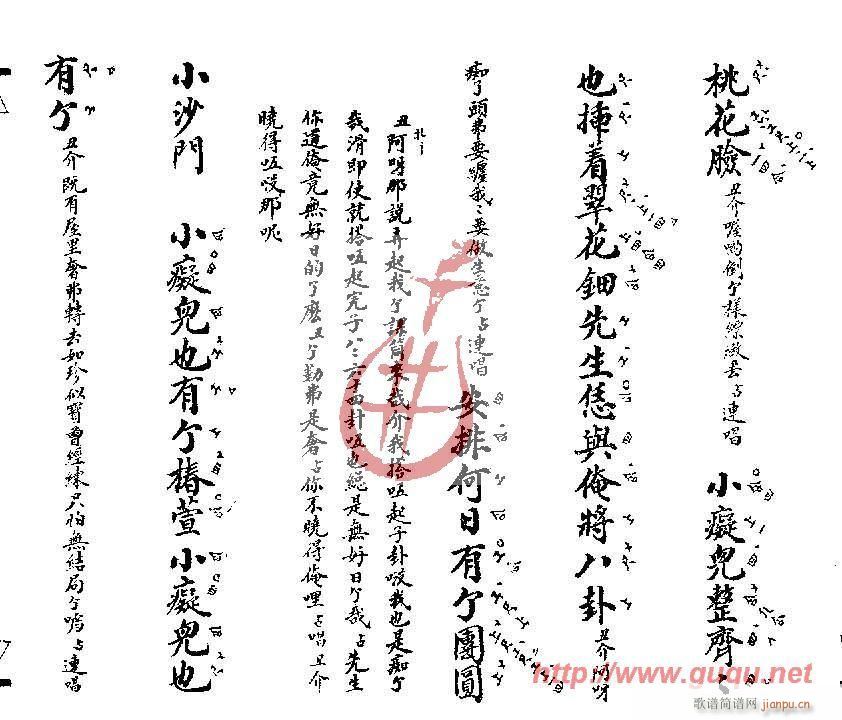 桃花臉 丑介喔喲倒个樣縹緻丟占連唱 小癡兒整齊
也插着翠花鈿先生恁與俺將八卦 丑介阿呀
痴丫頭弗要纏我〻要做生意个占連唱 安排何日有个團圓
丑阿呀那説弄起我个課筒來哉介我搭咗起子卦咬我也是痴个
哉滑即使就搭咗起完子八〻六十四卦咗也總是無好日个哉占先生
你道俺竟無好日的了麽丑个勤弗是奢占你不曉得俺哩占唱丑介
曉得咗咬那呢
小沙門 小癡兒也有个椿萱小癡兒也
有个 丑介既有屋里奢弗轉去如珍似寶曾經練只怕無結局个嘘占連唱
http://www.guqu.net
歌谱简谱网
jianpu.cn